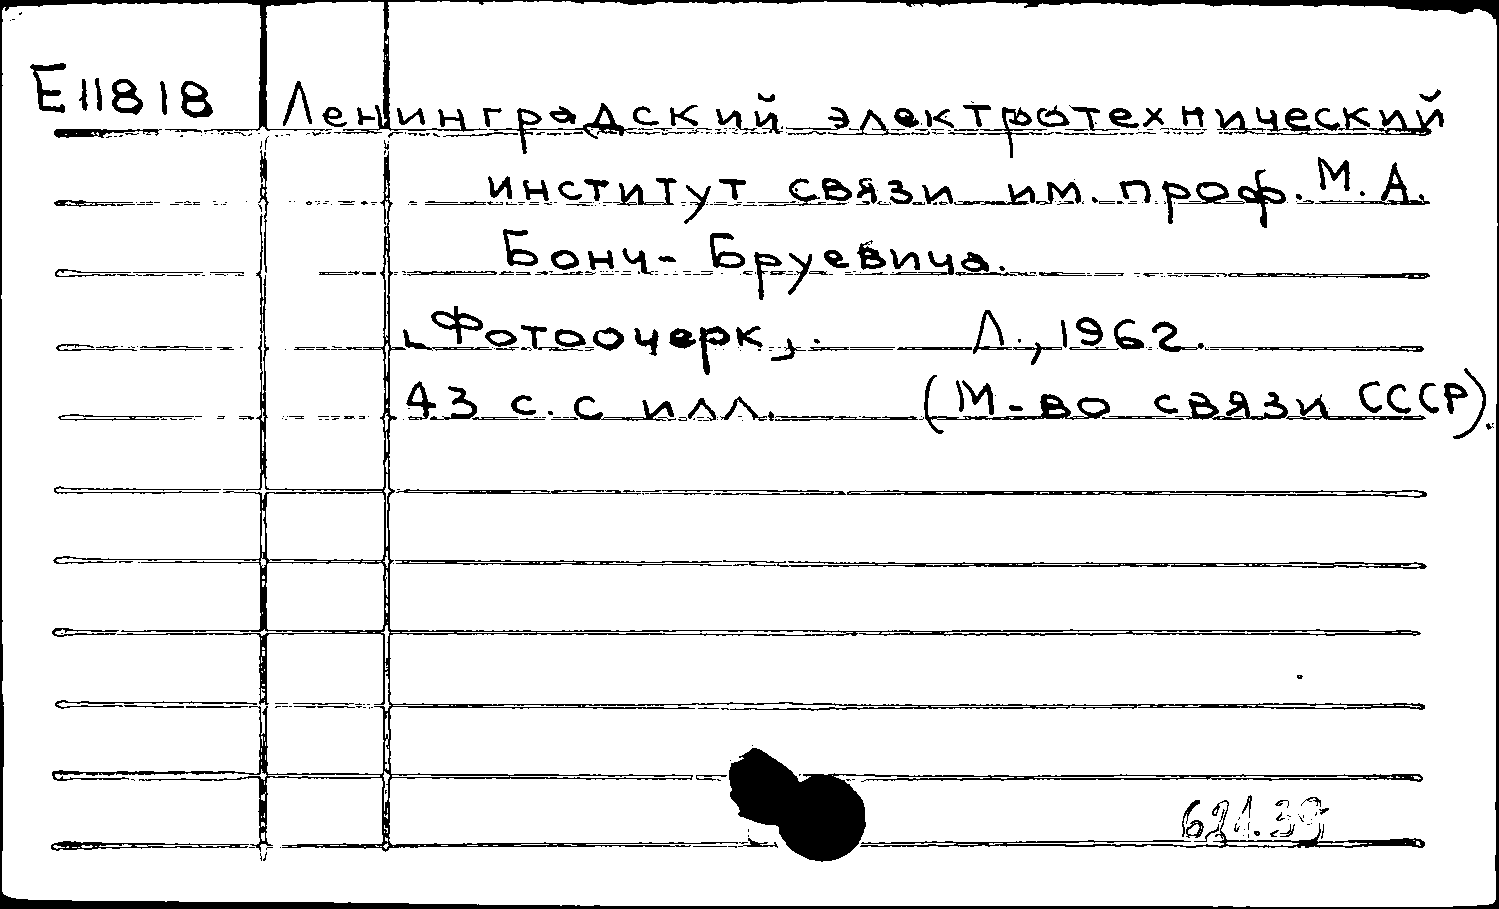 Е11818 Ленинградский электротехнический
институт связи им. проф. М. А.
Бонч-Бруевича.
[Фотоочерк]. Л., 1962.
43 с. с илл. (М-во связи СССР).
621.39